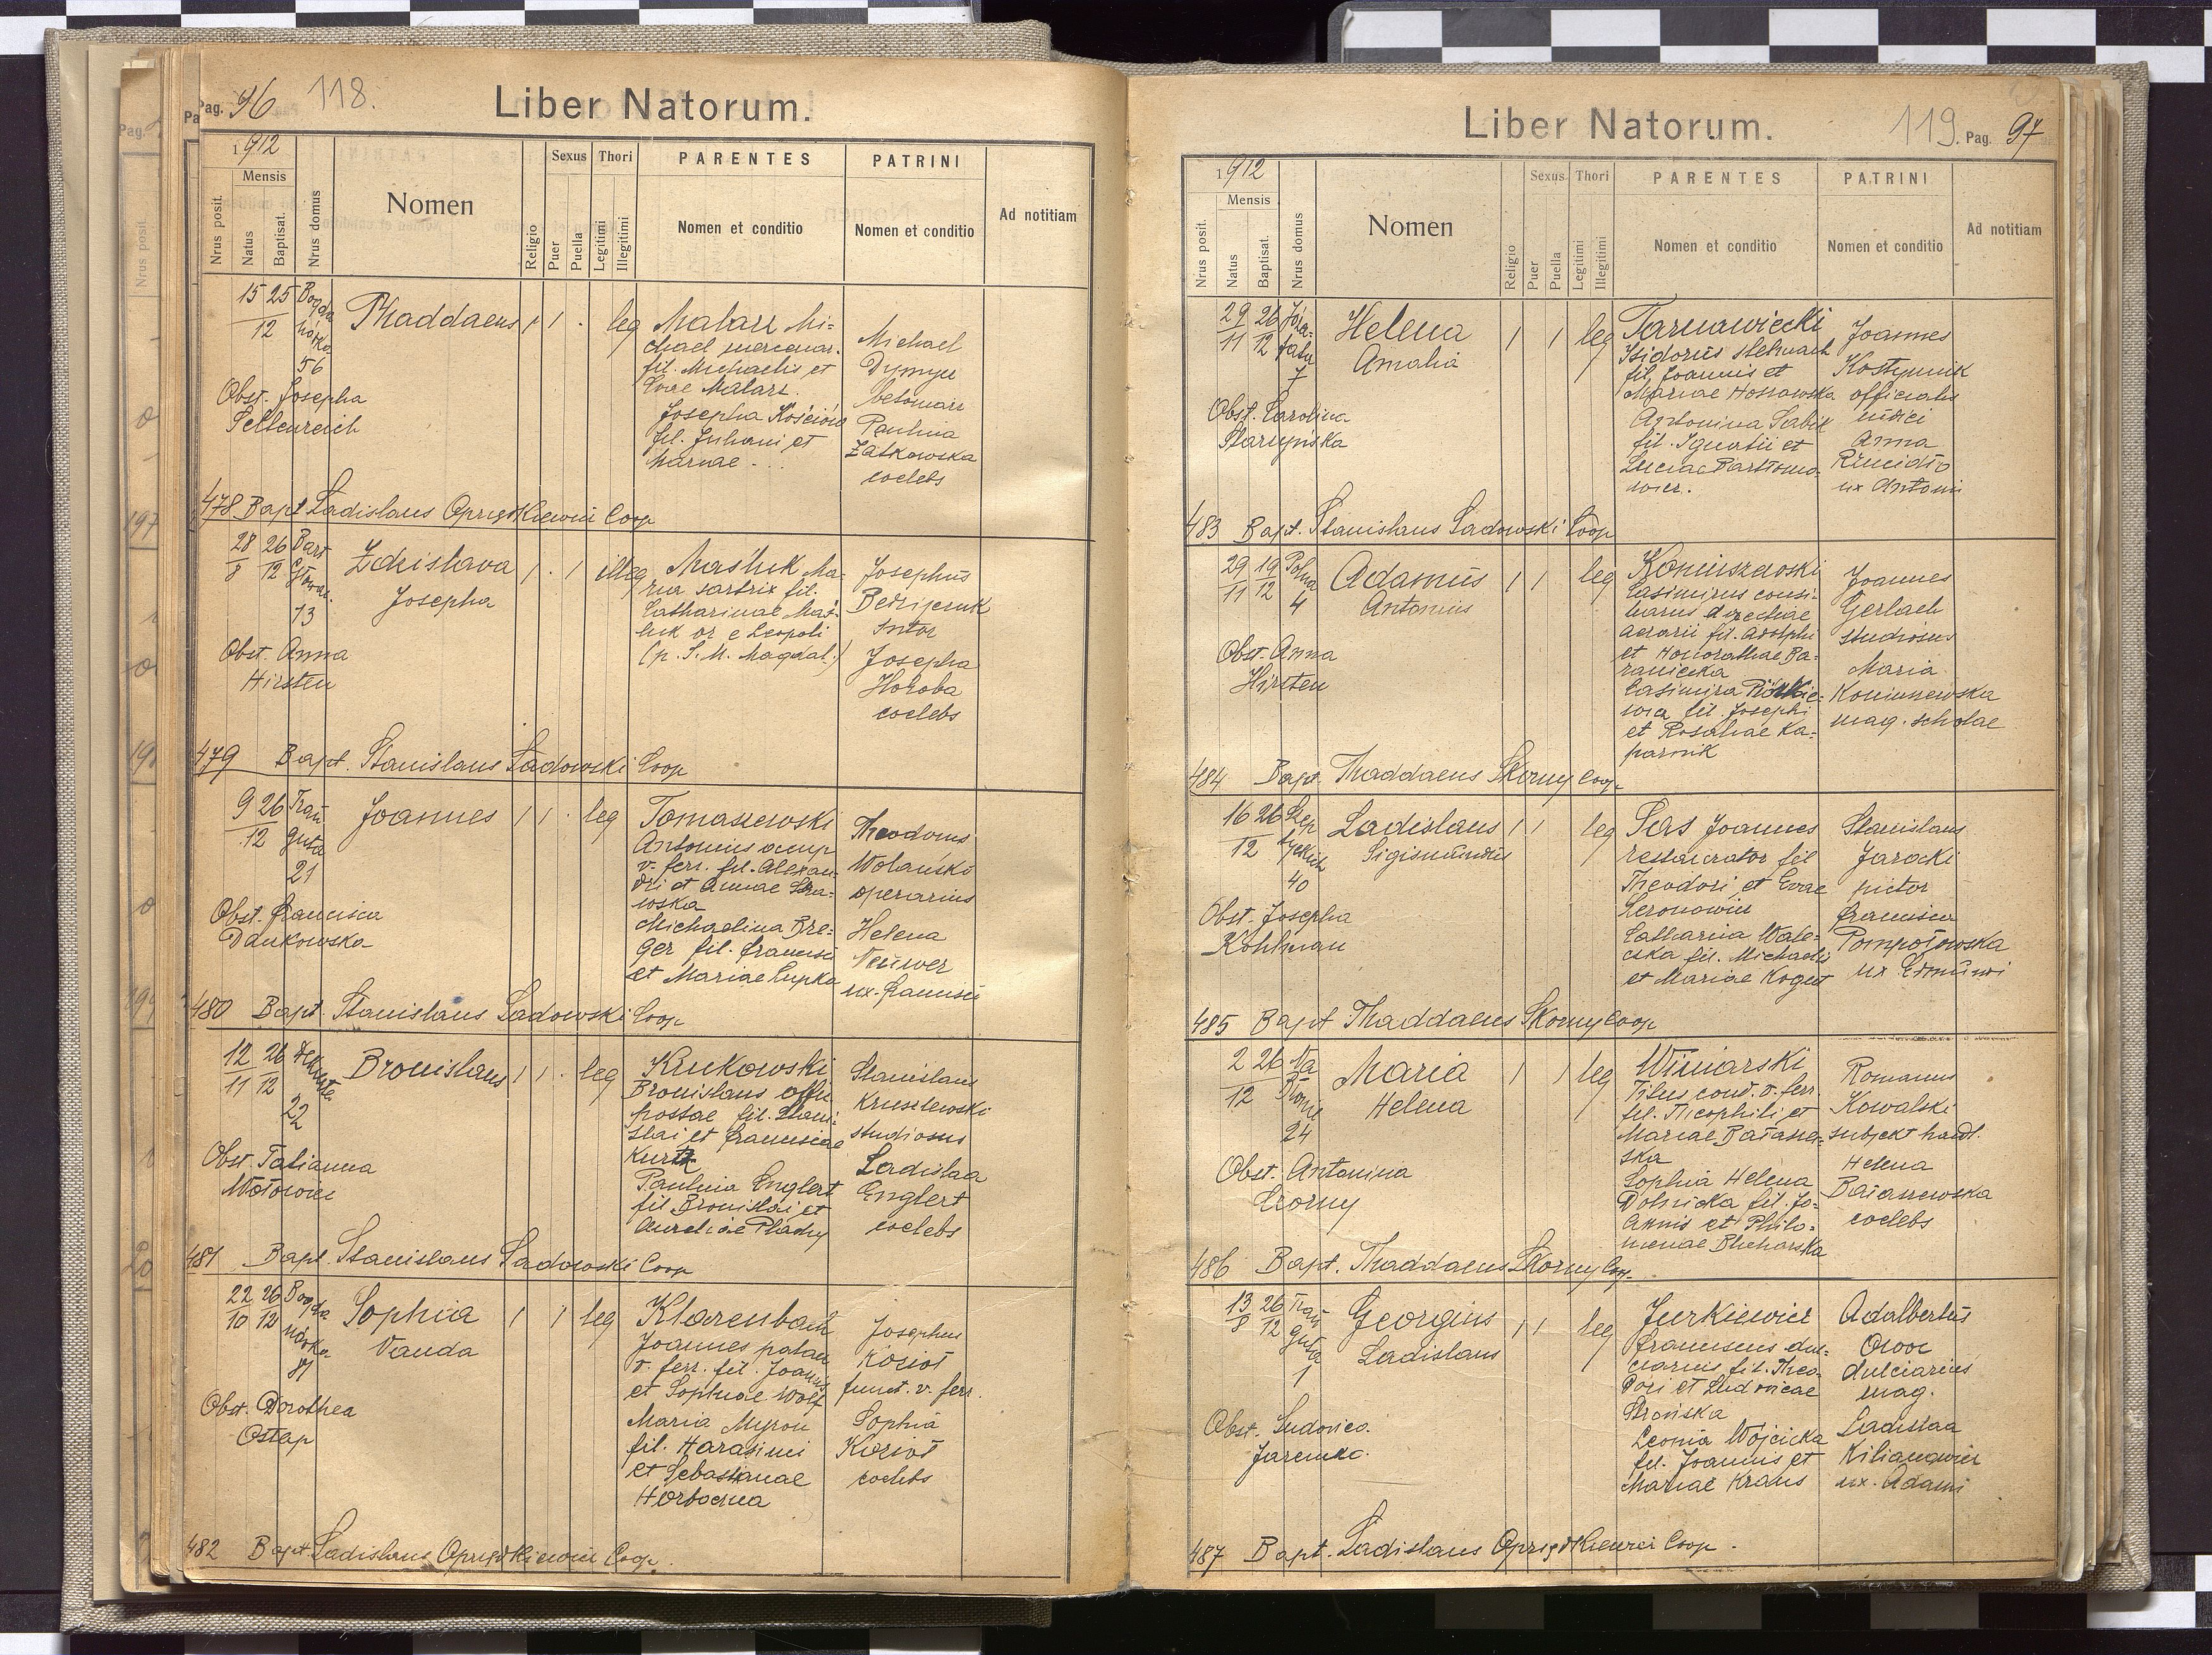 Pag. 96 118.
Liber Natorum.
1912
Mensis
Nrus posit.
Natus
Baptisat.
Nrus domus
Nomen
Religio
Sexus
Puer
Puella
Thori
Legitimi
Illegitimi
PARENTES
Nomen et conditio
PATRINI
Nomen et conditio
Ad notitiam
15 25
12
56
Thaddaeus
1 1 . leg
Malarz Mi-
chael mercenar.
fil. Michaelis et
Evae Malarz.
Josepha
fil. Juliani et
Mariae . . .
Michael
Pauline
Zatkowska
coelebs
Obst. Josepha
Sellenreich
478 Bapt Ladislaus Coop
28 26
8 12
73
Zdzislava
Josepha
1 . 1 illeg
Maśluk Ma-
ria sartrix fil.
Catharinae Maś-
luk or e Leopoli
(p. S. M. Magdal.)
Josephus
sutor
Josepha
Hohoba
coelebs
Obst. Anna
Hirsten
479 Bapt. Stanislaus Sadowski Coop
9 26
12
Trau
guta
21
Joannes
1 1 . leg
Tomaszewski
Antonius occup
v. ferr. fil. Alexan-
dri et Annae
wska
Michaelina Bre-
ger fil. Francisci
et Mariae Lupka
Theodorus
Wolański
operarius
Helena
ux. Francisci
Obst. Francisca
Dankowska
480 Bapt. Stanislaus Sadowski Coop
12 26
11 12
22
Bronislaus
1 1 . leg
Krukowski
Bronislaus offi
postae fil. Stani-
slai et Franciscae
Kurtz
Paulina Englert
fil Bronislai et
Aureliae
Stanislaus
Kruszlewski
studiosus
Ladislaa
Englert
coelebs
Obst. Tatianna
Wołowiec
481 Bapt. Stanislaus Sadowski Coop
22 26
10 12
Bogda
nówka
Sophia
Vanda
1 1 leg
Klarenbach
Joannes
v. ferr. fil. Joannis
et Sophiae Wolf
Maria Myron
fil. Harasimi
et Sebastianae
Josephus
Kozioł
funct. v. ferr.
Sophia
Kozioł
coelebs
Obst. Dorothea
Ostap
482 Bapt. Ladislaus Coop.
Liber Natorum.
119. Pag. 97
1912
Mensis
Nrus posit.
Natus
Baptisat.
Nrus domus
Nomen
Religio
Sexus
Puer
Puella
Thori
Legitimi
Illegitimi
PARENTES
Nomen et conditio
PATRINI
Nomen et conditio
Ad notitiam
29 26
11 12
7
Helena
Amalia
1 1 leg
Tarnawiecki
Isidorus
fil Joannis et
Mariae Hossowska
Antonina Sabik
fil. Ignatii et
Luciae Bartłomo-
wicz.
Joannes
Kostyniuk
officialis
iudici
Anna
ux Antoni
Obst. Carolina
483 Bapt. Stanislaus Sadowski Coop
29 19
11 12
Polna
4
Adamus
Antonius
1 1 leg
Koniuszewski
Casimirus consi-
liarius directiae
aerarii fil. Adolphi
et Honorathae Ba-
raniecka
Casimira
wicz fil. Josephi
et Rosaliae Ka-
parnik
Joannes
Gerlach
studiosus
Maria
Koniuszewska
mag. scholae
Obst. Anna
Hirsten
484 Bapt. Thaddaeus Skorny Coop.
16 26
12
Szep
tyckich
40
Ladislaus
Sigismundus
1 1 leg
Sas Joannes
restaurator fil
Theodori et Evae
Catharina Wale-
cka fil. Michaelis
et Mariae Kogut
Stanislaus
Jarocki
pictor
Francisca
Pompołowska
ux Edmundi
Obst. Josepha
Kohlman
485 Bapt Thaddaeus Skorny Coop
2 26
12
Na
Błonie
24
Maria
Helena
1 1 leg
Winiarski
Titus cond. v. ferr.
fil. Theophili et
Mariae
ska
Sophia Helena
Dolnicka fil. Jo-
annis et Philo-
menae Blicharska
Romanus
Kowalski
subjekt handl.
Helena
coelebs
Obst. Antonina
Czorny
486 Bapt. Thaddaeus Skorny Coop.
13 26
8 12
Trau
guta
1
Georgius
Ladislaus
1 1 leg
Jurkiewicz
Franciscus dul-
ciarius fil. Theo-
dori et Ludovicae
Strońska
Leonia Wójcicka
fil. Joannis et
Mariae Kraus
Adalbertus
Owoc
dulciarius
mag.
Ladislaa
Kilianowicz
ux. Adami
Obst. Ludovica
Jaremko.
487 Bapt. Ladislaus Coop.